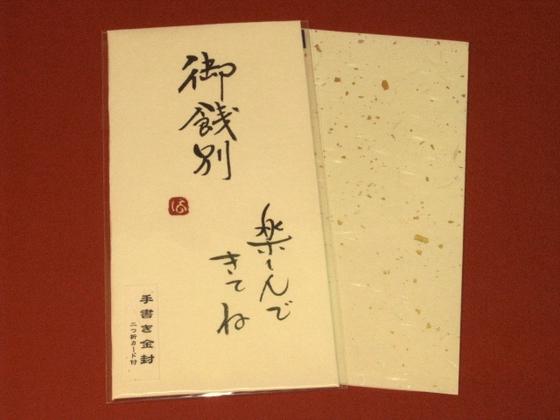 御餞別
楽しんで
きてね
手書き金封
二つ折カード付